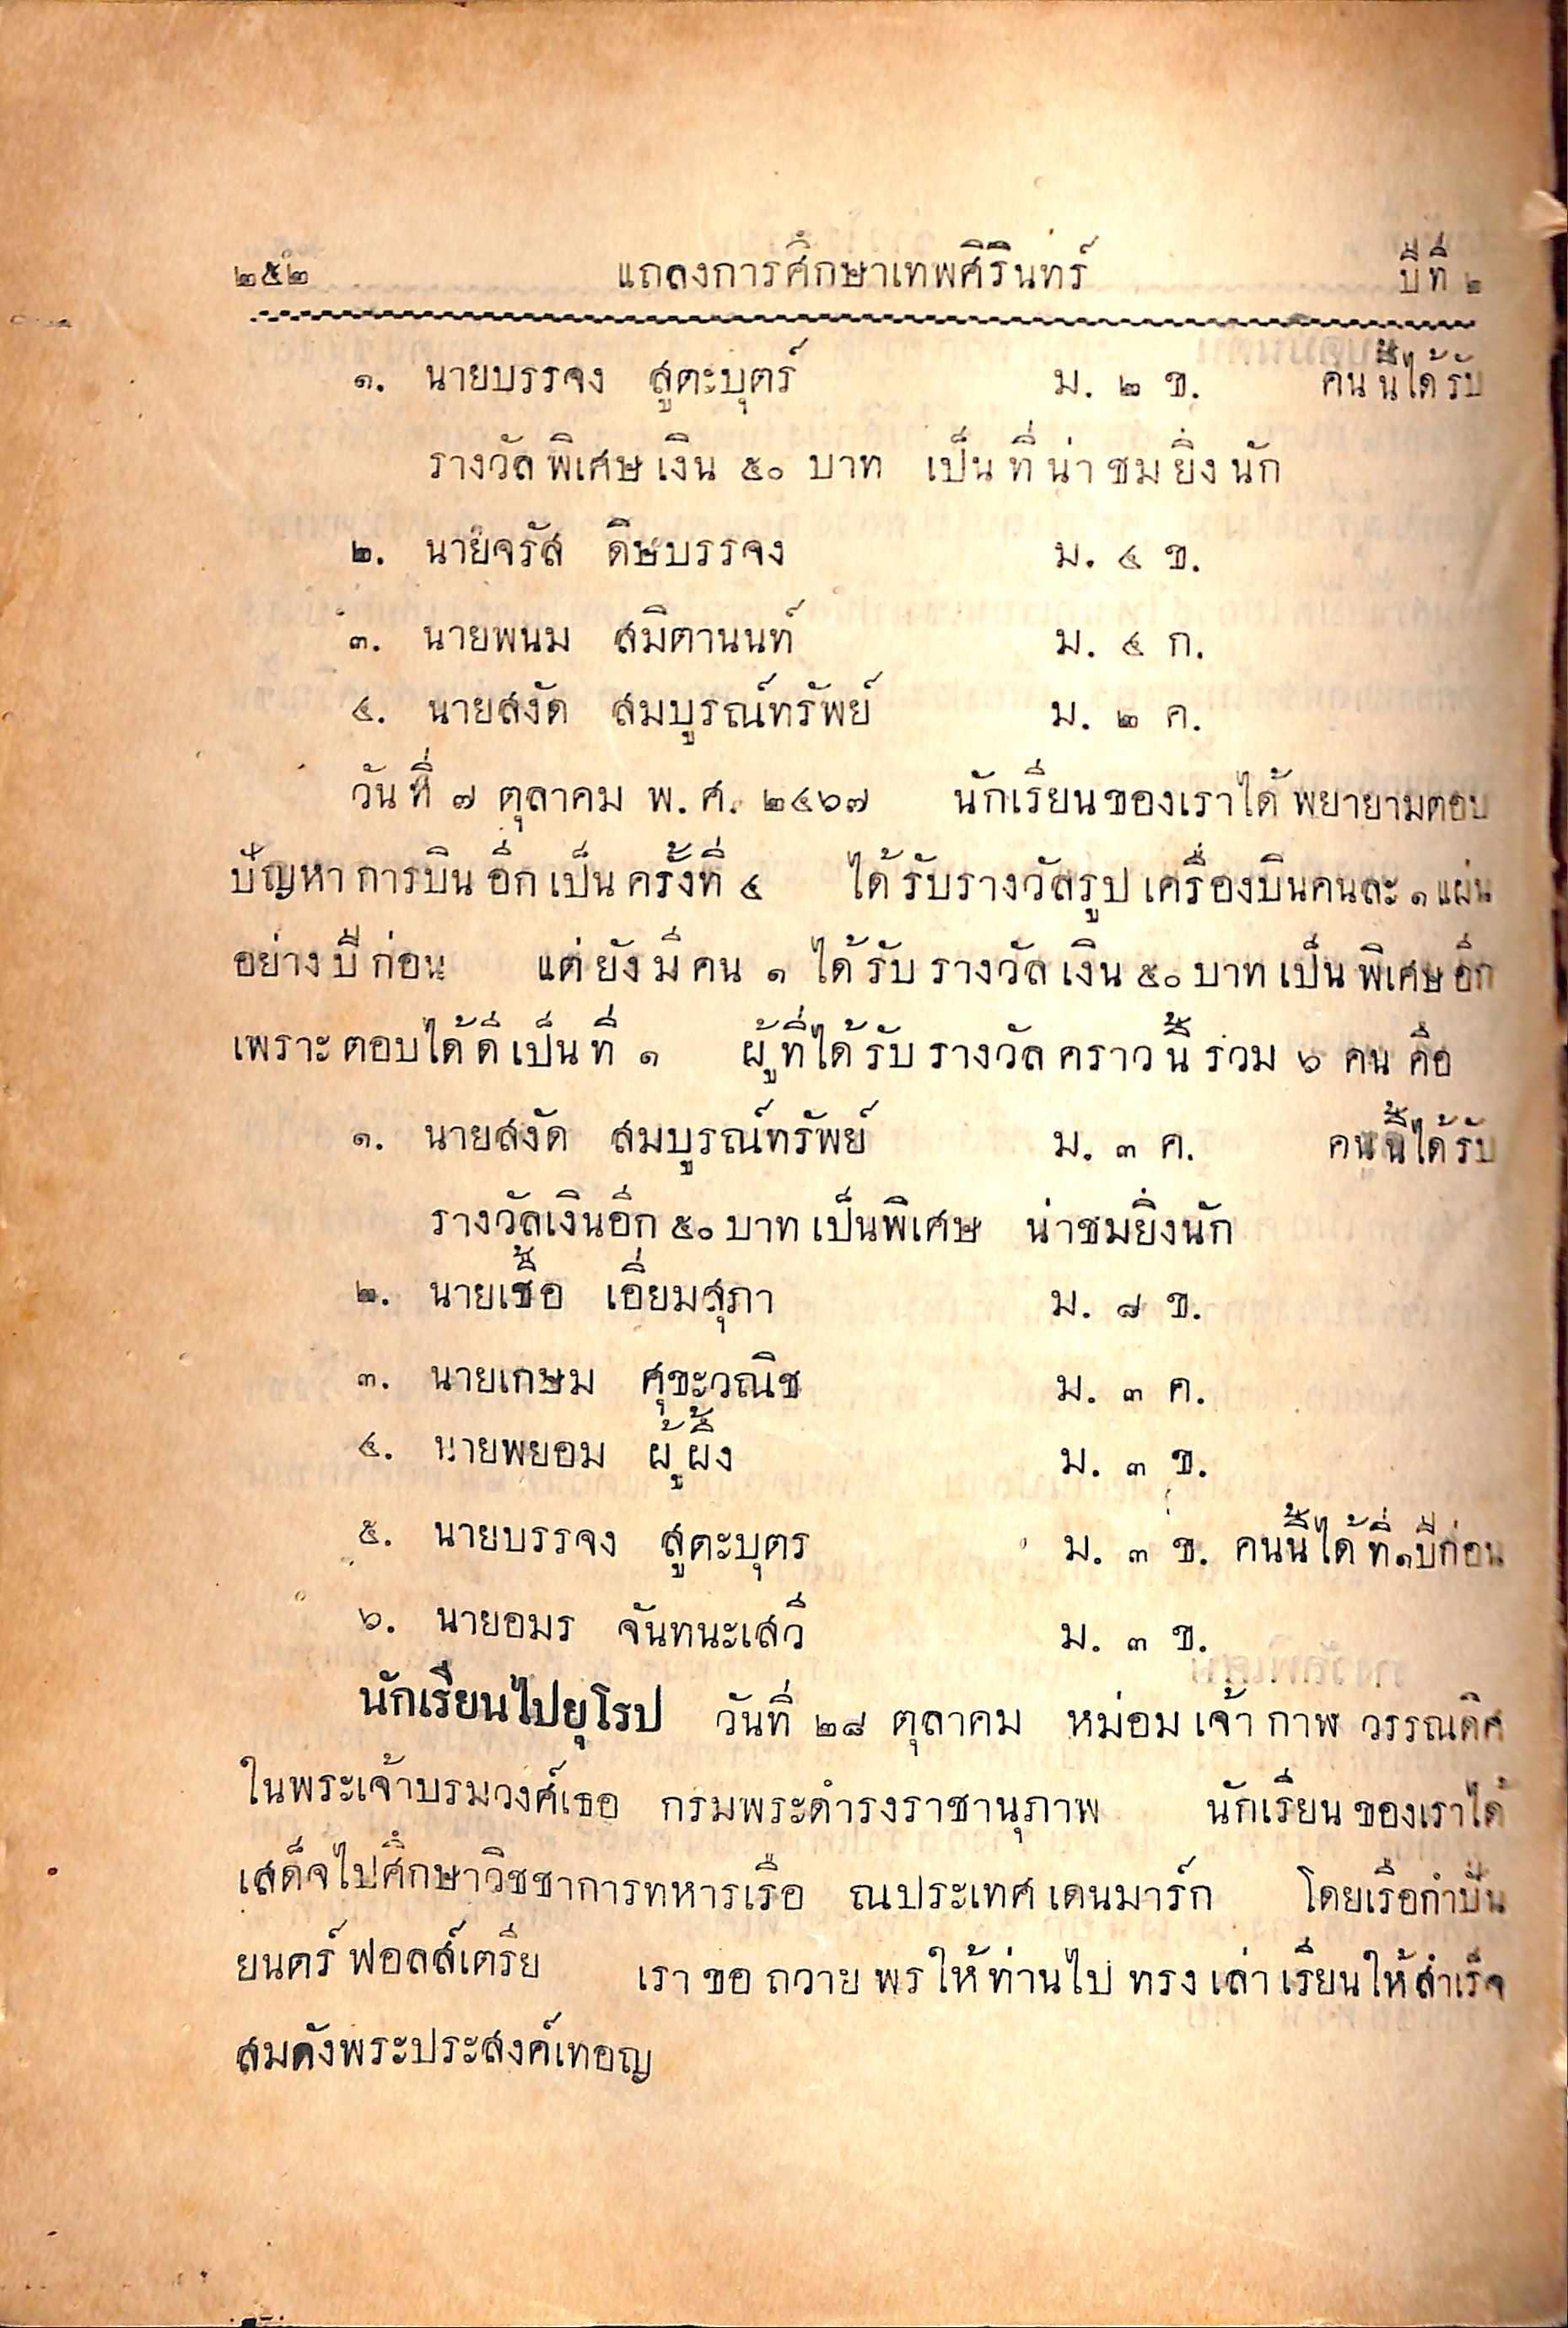 ๒๕๒ แถลงการศึกษาเทพศิรินทร์ ปีที่ ๒
๑. นายบรรจง สูตะบุตร์ ม. ๒ ข. คนนี้ได้รับ
รางวัลพิเศษเงิน ๕๐ บาท เป็นที่น่าชมยิ่งนัก
๒. นายจรัส ดิษบรรจง ม. ๔ ข.
๓. นายพนม สมิตานนท์ ม. ๔ ก.
๔. นายสงัด สมบูรณ์ทรัพย์ ม. ๒ ค.
วันที่ ๗ ตุลาคม พ.ศ. ๒๔๖๗ นักเรียนของเราได้พยายามตอบ
ปัญหาการบินอีกเป็นครั้งที่ ๔ ได้รับรางวัลรูปเครื่องบินคนละ ๑ แผ่น
อย่างปีก่อน แต่ยังมีคน ๑ ได้รับรางวัลเงิน ๕๐ บาทเป็นพิเศษอีก
เพราะตอบได้ดีเป็นที่ ๑ ผู้ที่ได้รับรางวัลคราวนี้รวม ๖ คน คือ
๑. นายสงัด สมบูรณ์ทรัพย์ ม. ๓ ค. คนนี้ได้รับ
รางวัลเงินอีก ๕๐ บาทเป็นพิเศษ น่าชมยิ่งนัก
๒. นายเชื้อ เอี่ยมสุภา ม. ๘ ข.
๓. นายเกษม ศุขะวณิช ม. ๓ ค.
๔. นายพยอม ผู้ผึ้ง ม. ๓ ข.
๕. นายบรรจง สูตะบุตร ม. ๓ ข. คนนี้ได้ที่ ๑ ปีก่อน
๖. นายอมร จันทนะเสวี ม. ๓ ข.
นักเรียนไปยุโรป วันที่ ๒๘ ตุลาคม หม่อมเจ้ากาพ วรรณดิศ
ในพระเจ้าบรมวงศ์เธอ กรมพระดำรงราชานุภาพ นักเรียนของเราได้
เสด็จไปศึกษาวิชชาการทหารเรือ ณประเทศเดนมาร์ก โดยเรือกำปั่น
ยนตร์ฟอลส์เตรีย เราขอถวายพรให้ท่านไปทรงเล่าเรียนให้สำเร็จ
สมดังพระประสงค์เทอญ